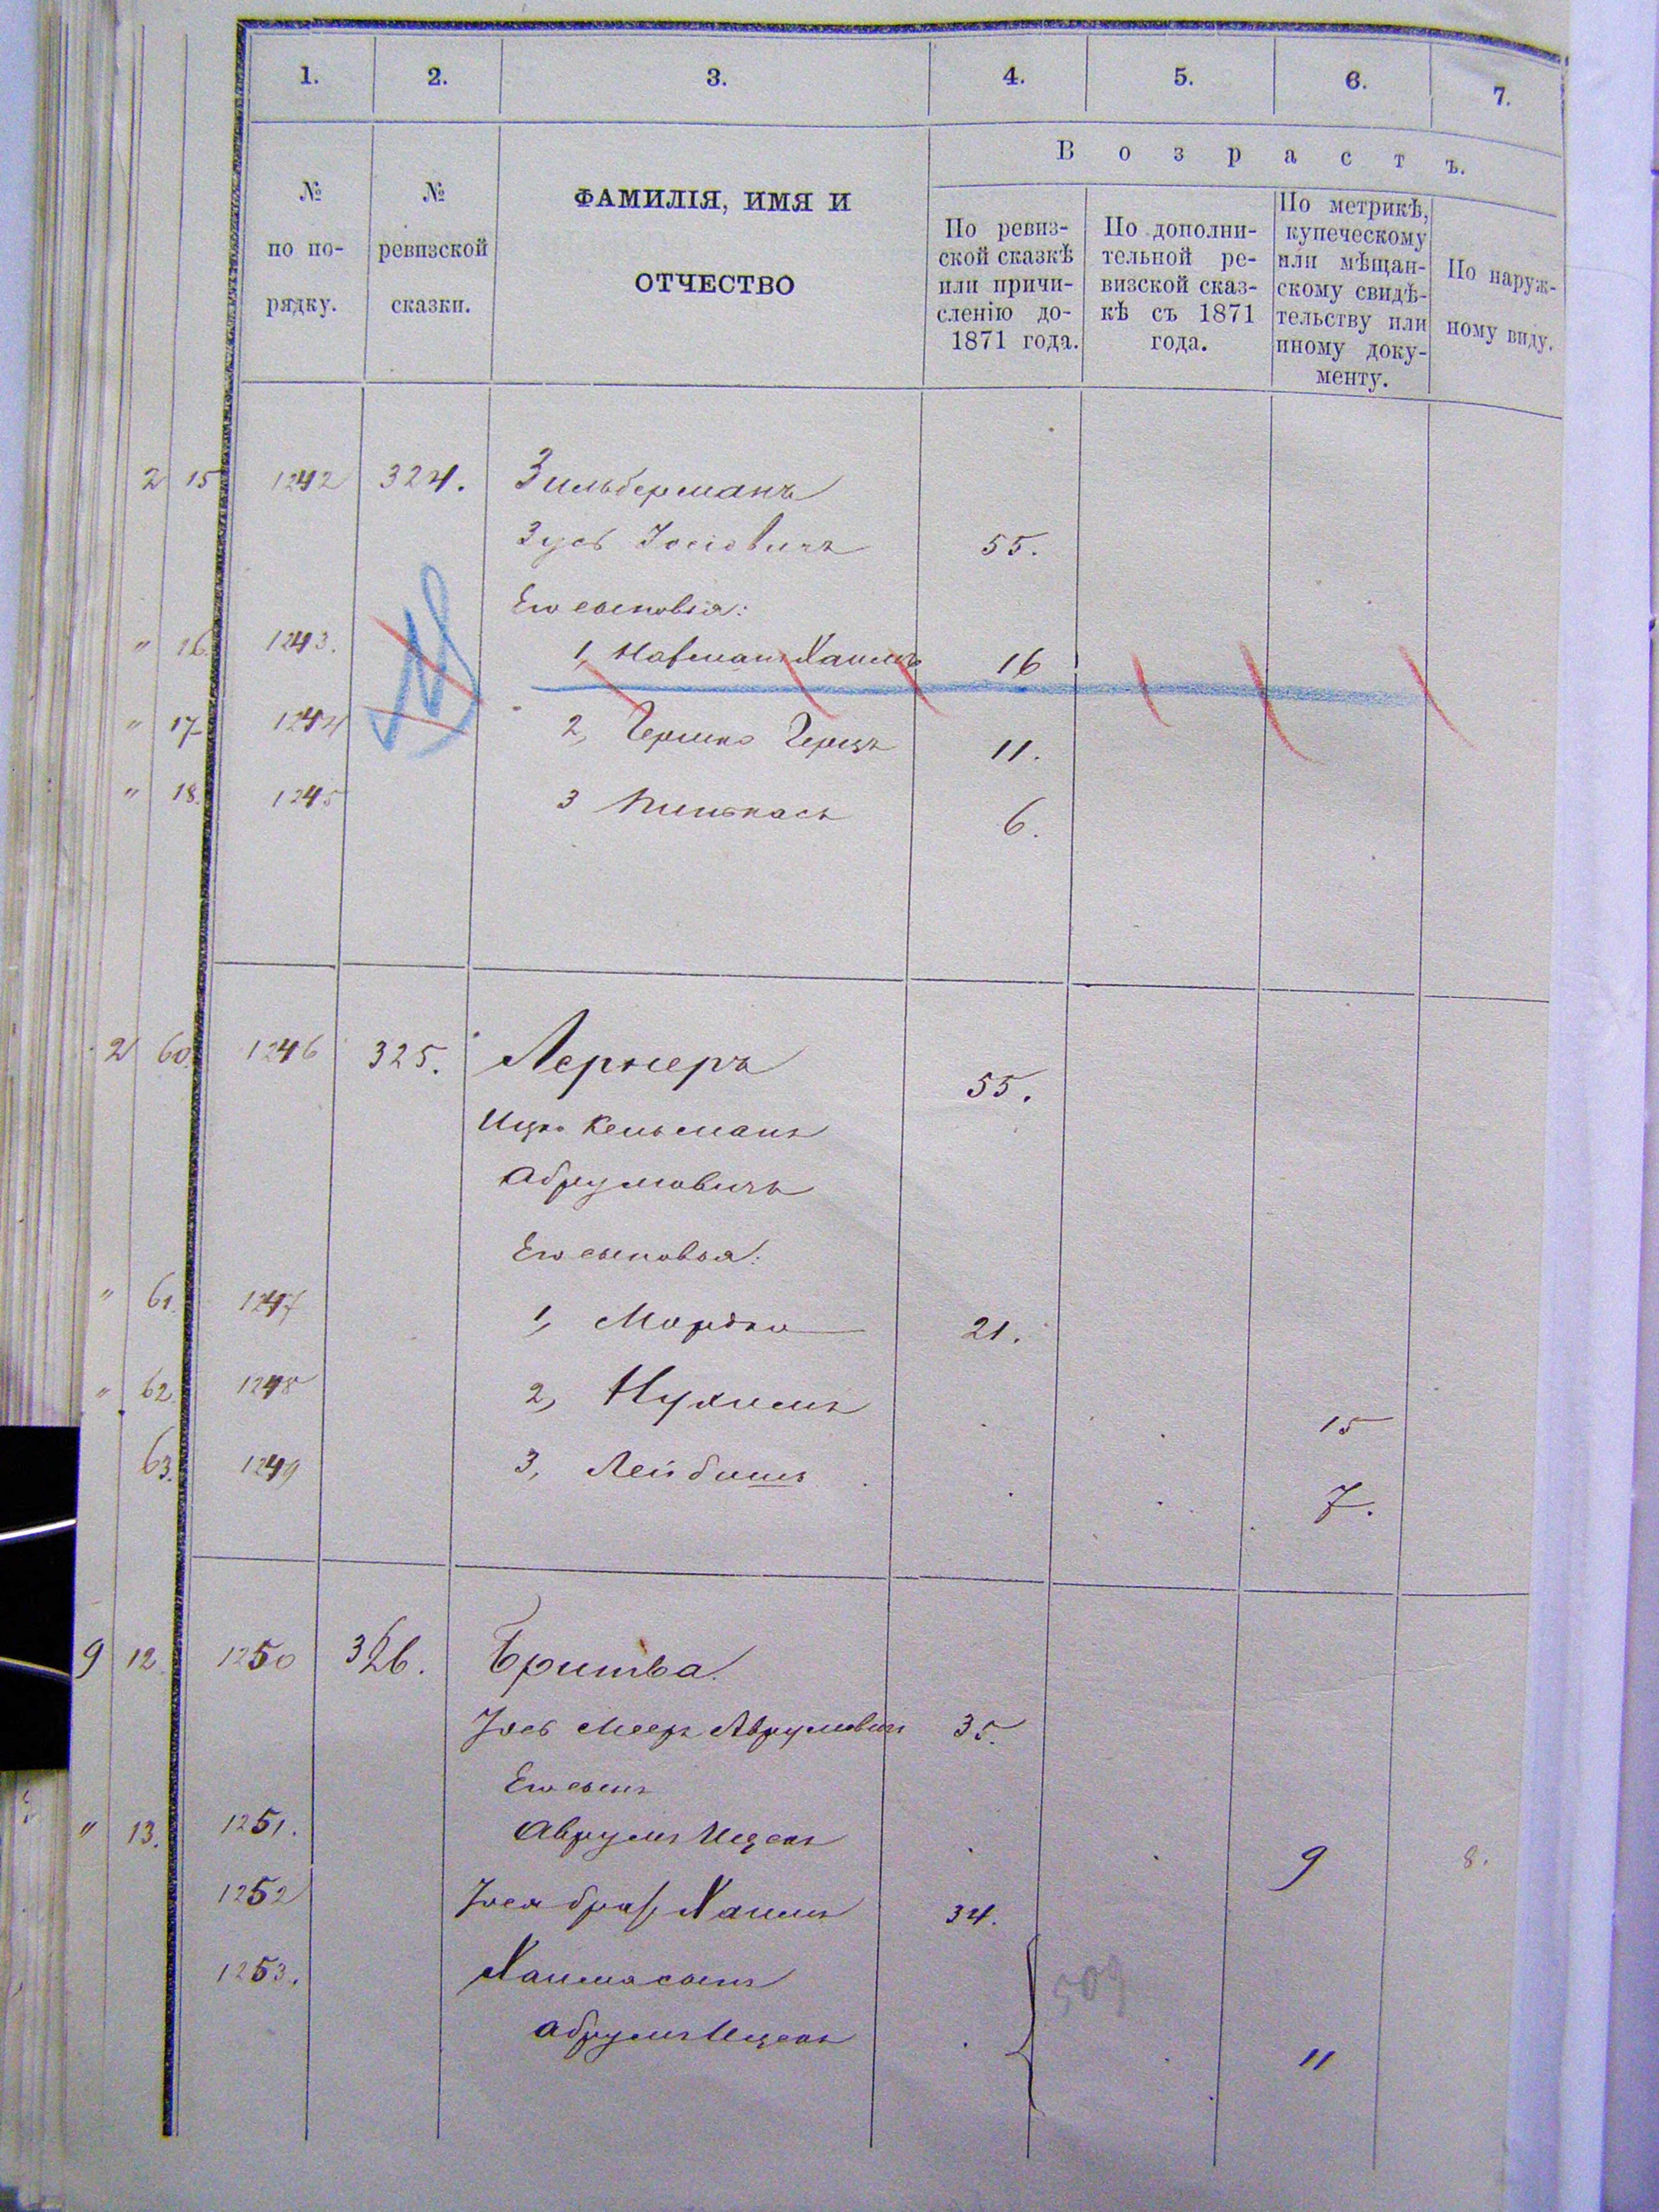 1. 2. 3. 4. 5. 6. 7.
№ по по-рядку.
№ ревизской сказки.
ФАМИЛІЯ, ИМЯ И
ОТЧЕСТВО
Возрастъ.
По ревиз-
ской сказкѣ
или причи-
сленію до-
1871 года.
По дополни-
тельной ре-
визской сказ-
кѣ съ 1871
года.
По метрикѣ,
купеческому
или мѣщан-
скому свидѣ-
тельству или
иному доку-
менту.
По наруж-
ному виду.
2 15 1242 324. Зильберманъ
Зусь Іосіовичъ 55.
Его сыновья:
" 16. 1243. 1, Хаимъ 16
" 17 1244 2, Гершко Герцъ 11.
" 18. 1245 3 Пинькасъ 6.
2 60. 1246 325. Лернеръ 55.
Ицко Кельманъ
Абрумовичъ
Его сыновья:
" 61. 1247 1, Мордко 21.
" 62. 1248 2, Нухимъ 15
63. 1249 3, Лейбишъ 7.
9 12. 1250 326. Бритва
Іосъ Мееръ Аврумовичъ 35.
Его сынъ
" 13. 1251. Аврумъ Ицекъ 9 8.
1252 Іося братъ Хаимъ 34.
1253. Хаима сынъ
Абрумъ Ицекъ 11
509